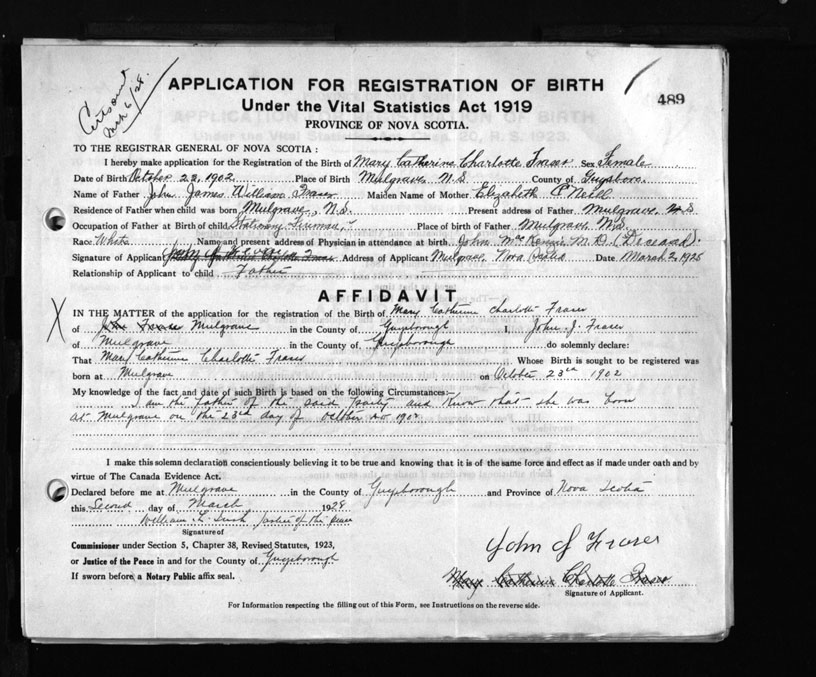 Mch 6/28.
APPLICATION FOR REGISTRATION OF BIRTH
489
Under the Vital Statistics Act 1919
PROVINCE OF NOVA SCOTIA.
TO THE REGISTRAR GENERAL OF NOVA SCOTIA :
I hereby make application for the Registration of the Birth of Mary Catherine Charlotte Fraser Sex Female
Date of Birth October 23, 1902 Place of Birth Mulgrave N.S. County of Guysboro.
Name of Father John James William Fraser Maiden Name of Mother Elizabeth O'Neill
Residence of Father when child was born Mulgrave, N.S. Present address of Father Mulgrave N.S
Occupation of Father at Birth of child Stationary Fireman, Place of birth of Father Mulgrave N.S.
Race White Name and present address of Physician in attendance at birth John M. D. (Deceased).
Signature of Applicant Mary Catherine Charlotte Fraser Address of Applicant Mulgrave, Nova Scotia Date March 2, 1928
Relationship of Applicant to child Father
AFFIDAVIT
X IN THE MATTER of the application for the registration of the Birth of Mary Catherine Charlotte Fraser
of John Fraser Mulgrave in the County of Guysborough I, John J. Fraser
of Mulgrave in the County of Guysborough do solemnly declare:
That Mary Catherine Charlotte Fraser Whose Birth is sought to be registered was
born at Mulgrave on October 23rd 1902
My knowledge of the fact and date of such Birth is based on the following Circumstances:—
I am the father of the said party and know that she was born
at Mulgrave on the 23rd day of October 1902
I make this solemn declaration conscientiously believing it to be true and knowing that it is of the same force and effect as if made under oath and by
virtue of The Canada Evidence Act.
Declared before me at Mulgrave in the County of Guysborough and Province of Nova Scotia
this Second day of March 1928
William justice of the peace
Signature of
Commissioner under Section 5, Chapter 38, Revised Statutes, 1923,
or Justice of the Peace in and for the County of Guysborough
If sworn before a Notary Public affix seal.
John J Fraser
Mary Catherine Charlotte Fraser
Signature of Applicant.
For Information respecting the filling out of this Form, see Instructions on the reverse side.